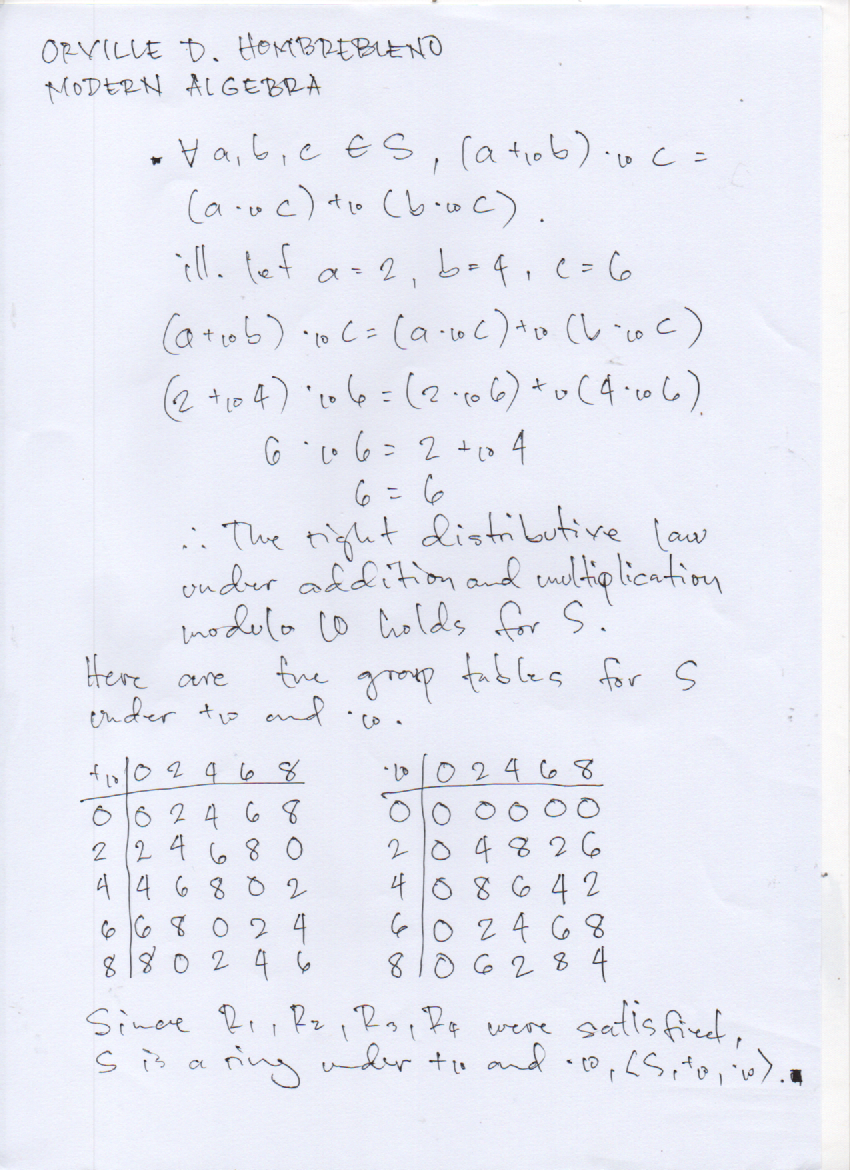 ORVILLE D. HOMBREBUENO
MODERN ALGEBRA
▪ ∀ a, b, c ∈ S, (a +₁₀ b) ·₁₀ c =
(a ·₁₀ c) +₁₀ (b ·₁₀ c).
ill. let a = 2, b = 4, c = 6
(a +₁₀ b) ·₁₀ c = (a ·₁₀ c) +₁₀ (b ·₁₀ c)
(2 +₁₀ 4) ·₁₀ 6 = (2 ·₁₀ 6) +₁₀ (4 ·₁₀ 6)
6 ·₁₀ 6 = 2 +₁₀ 4
6 = 6
∴ The right distributive law
under addition and multiplication
modulo 10 holds for S.
Here are the group tables for S
under +₁₀ and ·₁₀.
+₁₀ 0 2 4 6 8
0 0 2 4 6 8
2 2 4 6 8 0
4 4 6 8 0 2
6 6 8 0 2 4
8 8 0 2 4 6
·₁₀ 0 2 4 6 8
0 0 0 0 0 0
2 0 4 8 2 6
4 0 8 6 4 2
6 0 2 4 6 8
8 0 6 2 8 4
Since R₁, R₂, R₃, R₄ were satisfied,
S is a ring under +₁₀ and ·₁₀, ⟨S, +₁₀, ·₁₀⟩. ▪